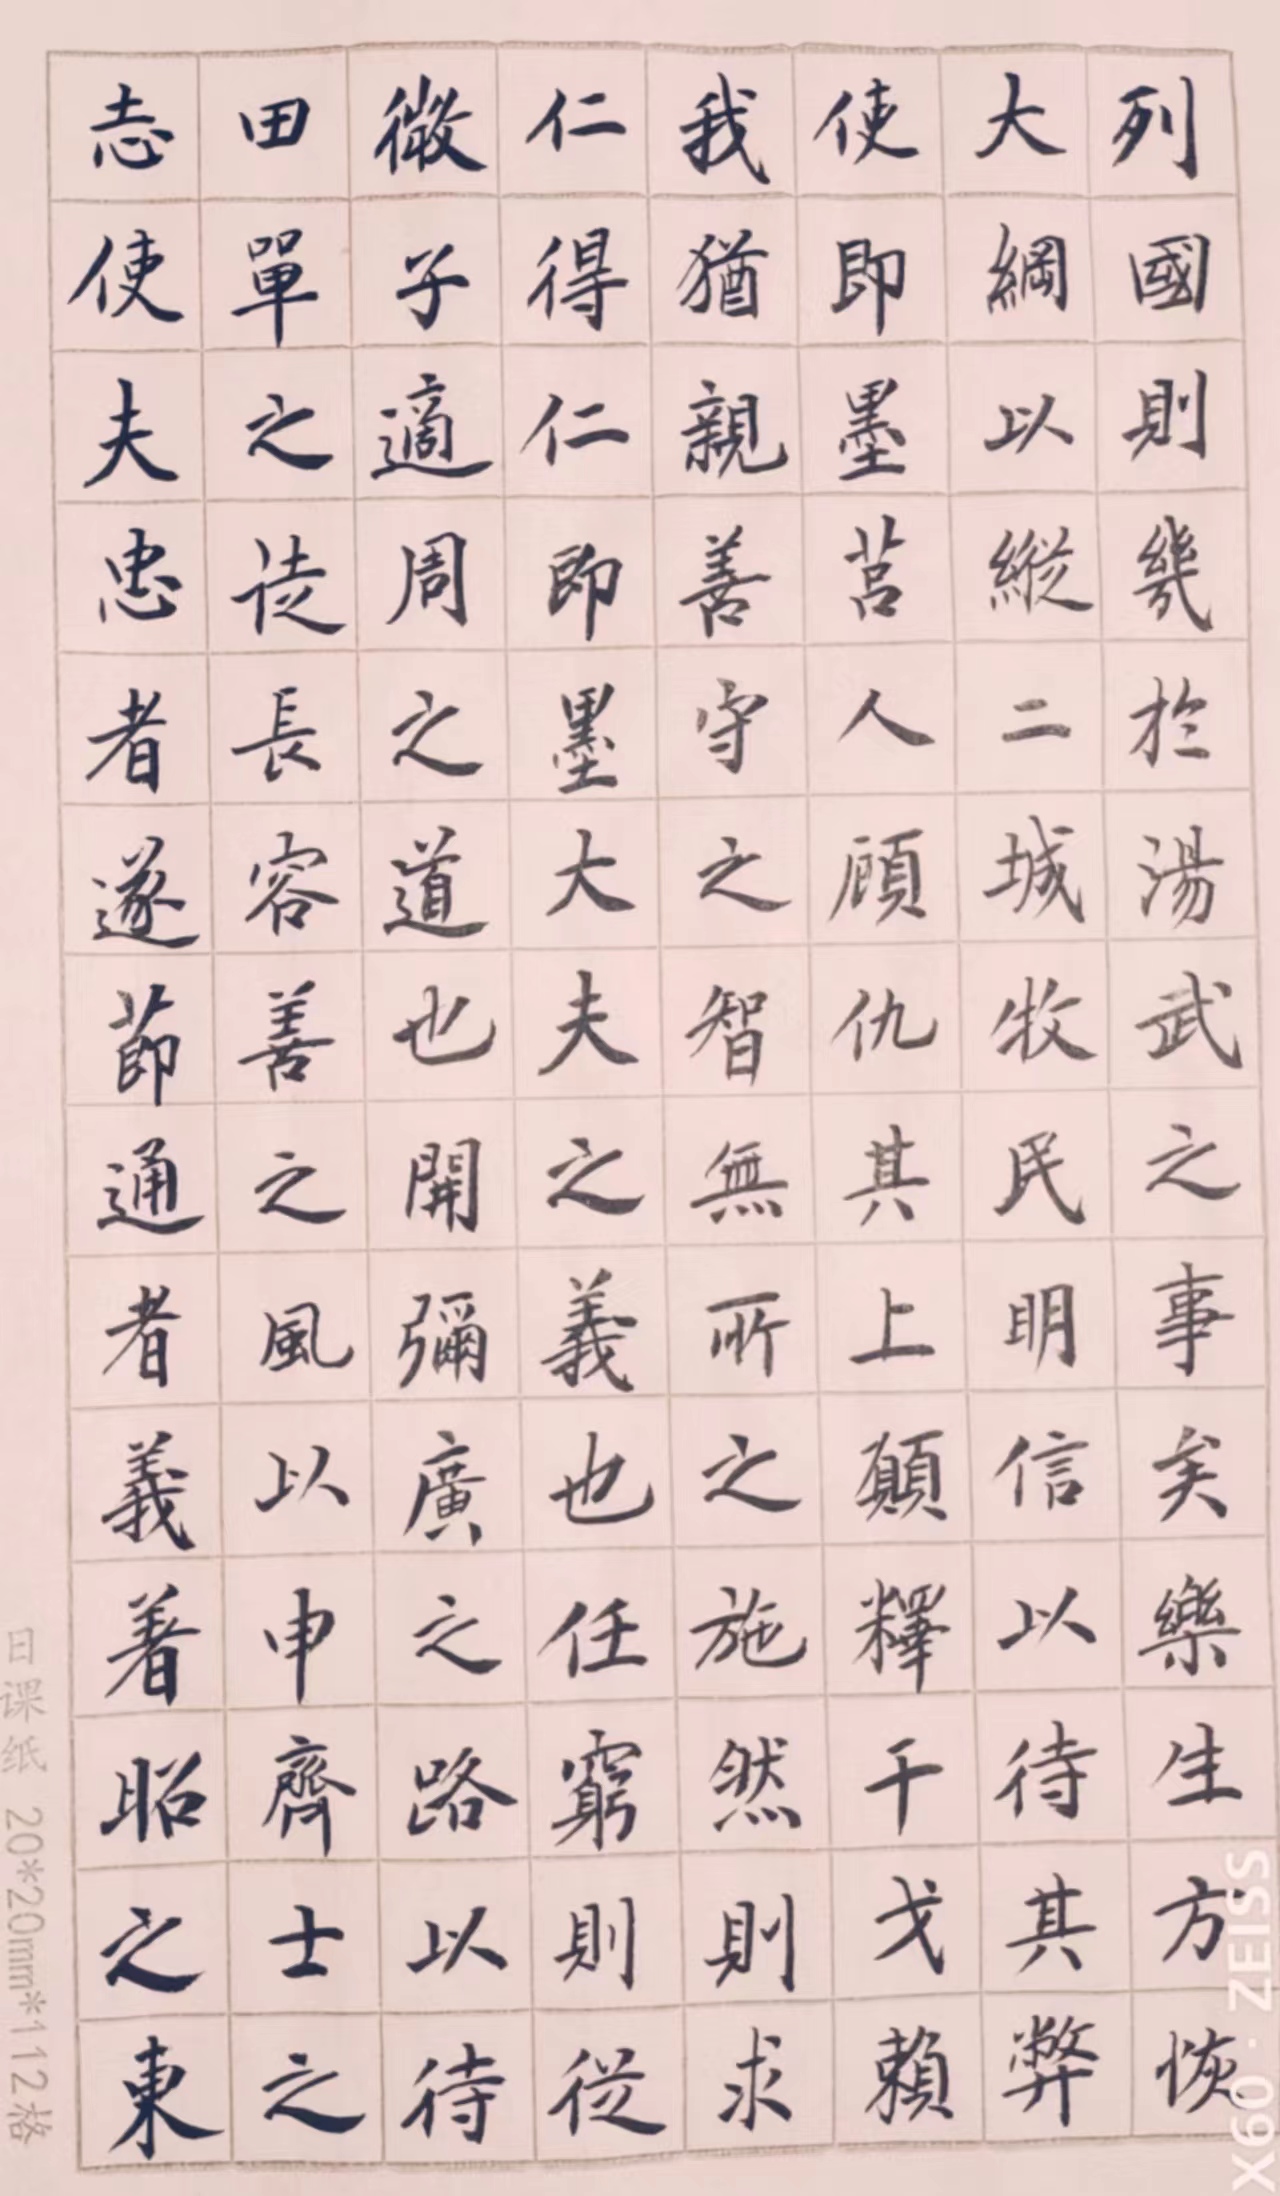 列國則幾於湯武之事矣樂生方恢
大綱以縱二城牧民明信以待其弊
使即墨莒人顧仇其上願釋干戈賴
我猶親善守之智無所之施然則求
仁得仁即墨大夫之義也任窮則從
微子適周之道也開彌廣之路以待
田單之徒長容善之風以申齊士之
志使夫忠者遂節通者義著昭之東
日课纸 20*20mm*112格
X60 · ZEISS